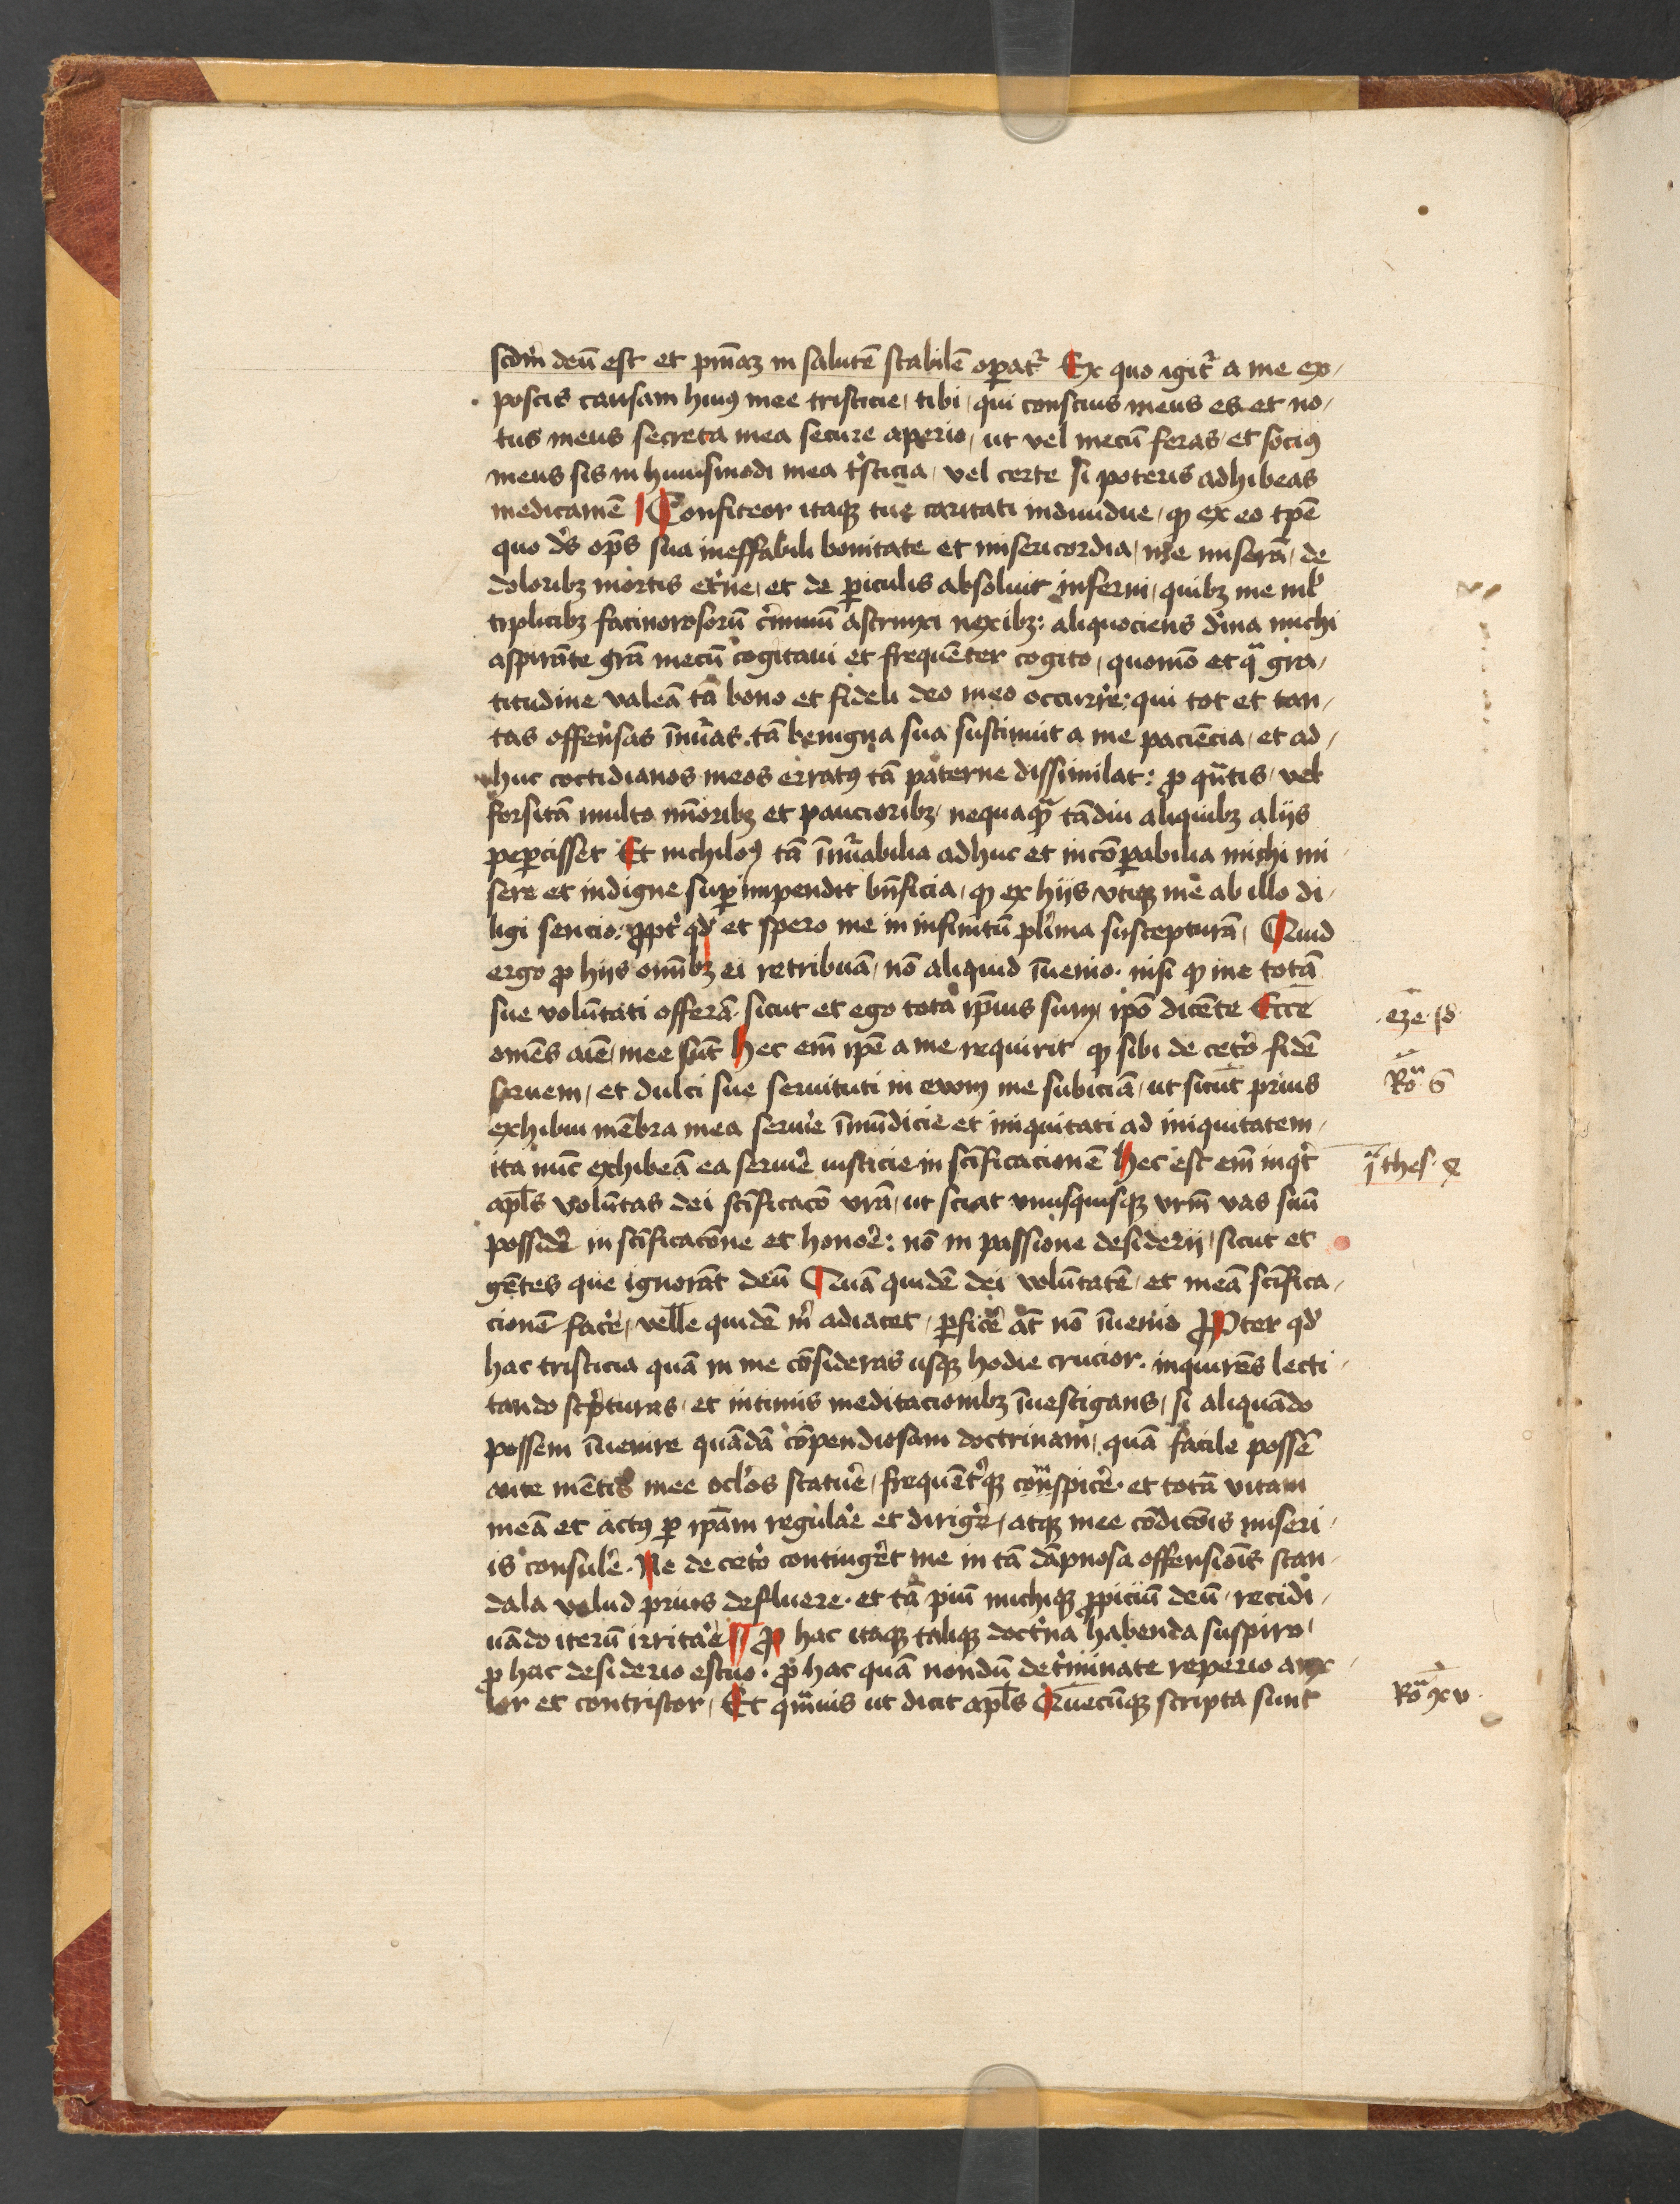 scdm̄ deū est et pm̄iaȝ in salutē stabilē opat᷑ Ex quo igit᷑ a me ex-
poscis causam huiꝰ mee tristicie, tibi, qui conscius meus es et no-
tus meus secreta mea secure aperio, ut vel mecū feras, et sociꝰ
meus sis in huiusmodi mea tⁱsticia, vel certe si poteris adhibeas
medicamē Confiteor itaqꝫ tue caritati indiuidue, ꝙ ex eo tp̄e
quo dˢ opˢ sua ineffabili bonitate et misericordia, me miserā, de
doloribꝫ mortis et᷑ne, et de ꝑiculis absoluit inferni, quibꝫ me ml᷑
tiplicibꝫ facinorosorū c᷑iminū astrinxi nexibꝫ: aliquociens diīna michi
aspirāte grā mecū cogitaui et frequēter cogito, quomō et qᵃ gra-
titudine valeā tā bono et fideli deo meo occurr᷑e: qui tot et tan-
tas offensas īnūas. tā benigna sua sustinuit a me paciēcia, et ad-
huc cottidianos meos erratꝰ tā paterne dissimilat: ꝓ qn̄tis, vel
forsitā multo mīoribꝫ et paucioribꝫ, nequaqᵃ tādiu aliquibꝫ alijs
peꝑcisset Et nichiloꝰ tā īnūabilia adhuc et incōꝑabilia michi mi-
sere et indigne suꝑimpendit bn̄ficia, ꝙ ex hijs vtiqꝫ me ab illo di-
ligi sencio: ꝓpt᷑ qd᷑ et spero me in infinitū pl᷑ima suscepturā, Quid
ergo ꝓ hijs om̄ibꝫ ei retribuā, nō aliquid īuenio. nisi ꝙ me totā
sue volūtati offerā. sicut et ego tota ip̄ius sum, ip̄o dicēte Ecce
om̄es aīe, mee sūt Hec em̄ ip̄e a me requirit ꝙ sibi de cet᷑o fidē
seruem, et dulci sue seruituti in euom me subiciā, ut sicut prius
exhibui mēbra mea serui᷑e īmūdicie et iniquitati ad iniquitatem,
ita nūc exhibeā ea serui᷑e iusticie in scīficacionē Hec est em̄ inqⁱt
apl̄s voluntas dei scīficacō vrā, ut sciat vnusquisqꝫ vrm̄ vas suū
possid᷑e in scīficacōne et hono᷑e: nō in passione desiderij, sicut et
gētes que ignorāt deū Quā quidē dei volūtatē, et meā scīfica-
cionē fac᷑e, velle quidē m̄ adiacet, ꝑfic᷑e āt nō īuenio Propter qd᷑
hac tristicia quā in me cōsideras usqꝫ hodie crucior. inquirēs lecti-
tando scⁱpturas, et intimis meditacionibꝫ īuestigans, si aliquādo
possem īuenire quādā cōpendiosam doctrinam, quā facile possē
ante mētis mee ocl᷑os statu᷑e, frequēt᷑qꝫ conspic᷑e. et totā vitam
meā et actꝰ ꝑ ip̄am regula᷑e et dirig᷑e, atqꝫ mee cōdicōis miseri-
is consul᷑e. Ne de cet᷑o conting᷑et me in tā dāpnosa offensiōis scan-
dala velud prius defluere. et tā piū michiqꝫ ꝓpiciū deū, recidi-
uādo iterū irrita᷑e Pro hac itaqꝫ taliqꝫ doctⁱna habenda suspiro,
ꝓ hac desiderio estuo. ꝓ hac quā nondū det᷑minate reperio anx-
ior et contristor, Et qm̄uis ut dicit apl̄s Quecūqꝫ scripta sunt
eze. 18.
Roᵃ 6
iᵃ thes. 4
Roᵃ xv.